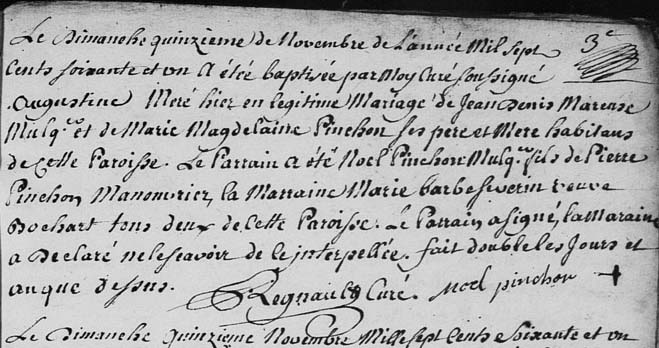 Le Dimanche quinzieme de Novembre de L'année Mil sept
3e
Cents soixante et un a été baptisée par Moy Curé soussigné
augustine Neré hier en legitime Mariage de Jean Denis
Mulq.er et de Marie Magdelaine Pinchon ses pere et Mere habitans
de cette Paroisse. Le Parrain a été Noel Pinchon Mulq.er fils de Pierre
Pinchon Manouvrier, la Marraine Marie barbe Siverin veuve
Bochart tous deux de cette Paroisse. Le Parrain a signé, la Maraine
a Declaré ne le sçavoir de ce interpellée. fait double les Jours et
an que dessus. Regnault Curé. Noel pinchon +
Le Dimanche quinzieme Novembre Mille sept Cents soixante et un